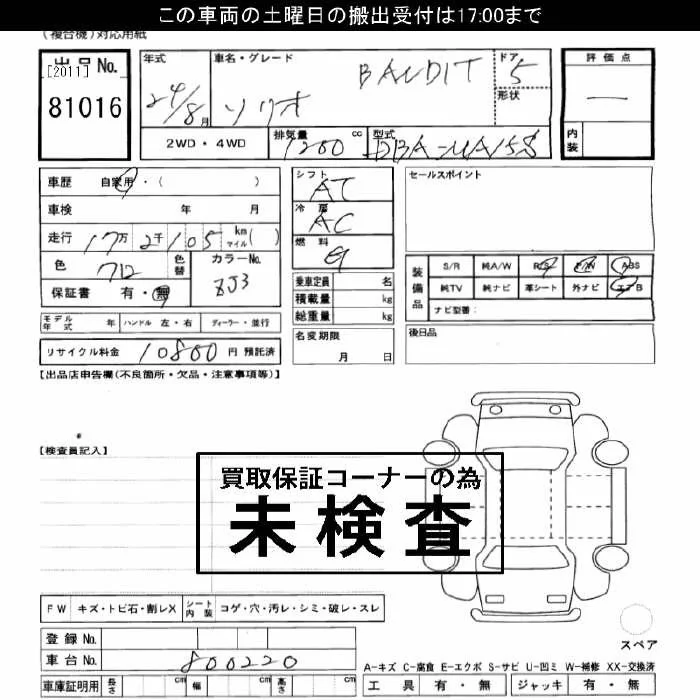 この車両の土曜日の搬出受付は17:00まで
(複合機)対応用紙
出品No.
[2011]
81016
年式 24/8月
車名・グレード BANDIT
ソリオ
ドア 5
形状
2WD・4WD
排気量 1200 cc
型式 DBA-MA15S
評価点
―
内装
車歴 自家用・( )
車検 年 月
走行 17万2千105 km マイル( )
色 712 色替 カラーNo. ZJ3
保証書 有・無
シフト AT
冷房 AC
燃料 G
乗車定員 名
積載量 kg
総重量 kg
セールスポイント
装備品 S/R 純A/W R/S P/W ABS
純TV 純ナビ 革シート 外ナビ エアB
ナビ型番:
モデル年式 年 ハンドル 左・右 ディーラー・並行
リサイクル料金 10800 円 預託済
名変期限
月 日
後日品
【出品店申告欄(不良箇所・欠品・注意事項等)】
【検査員記入】
買取保証コーナーの為
未検査
FW キズ・トビ石・割レX シート内装 コゲ・穴・汚レ・シミ・破レ・スレ
登録No.
車台No. 800220
スペア
A-キズ C-腐食 E-エクボ S-サビ U-凹ミ W-補修 XX-交換済
車庫証明用 長さ cm 幅 cm 高さ cm
工具 有・無 ジャッキ 有・無